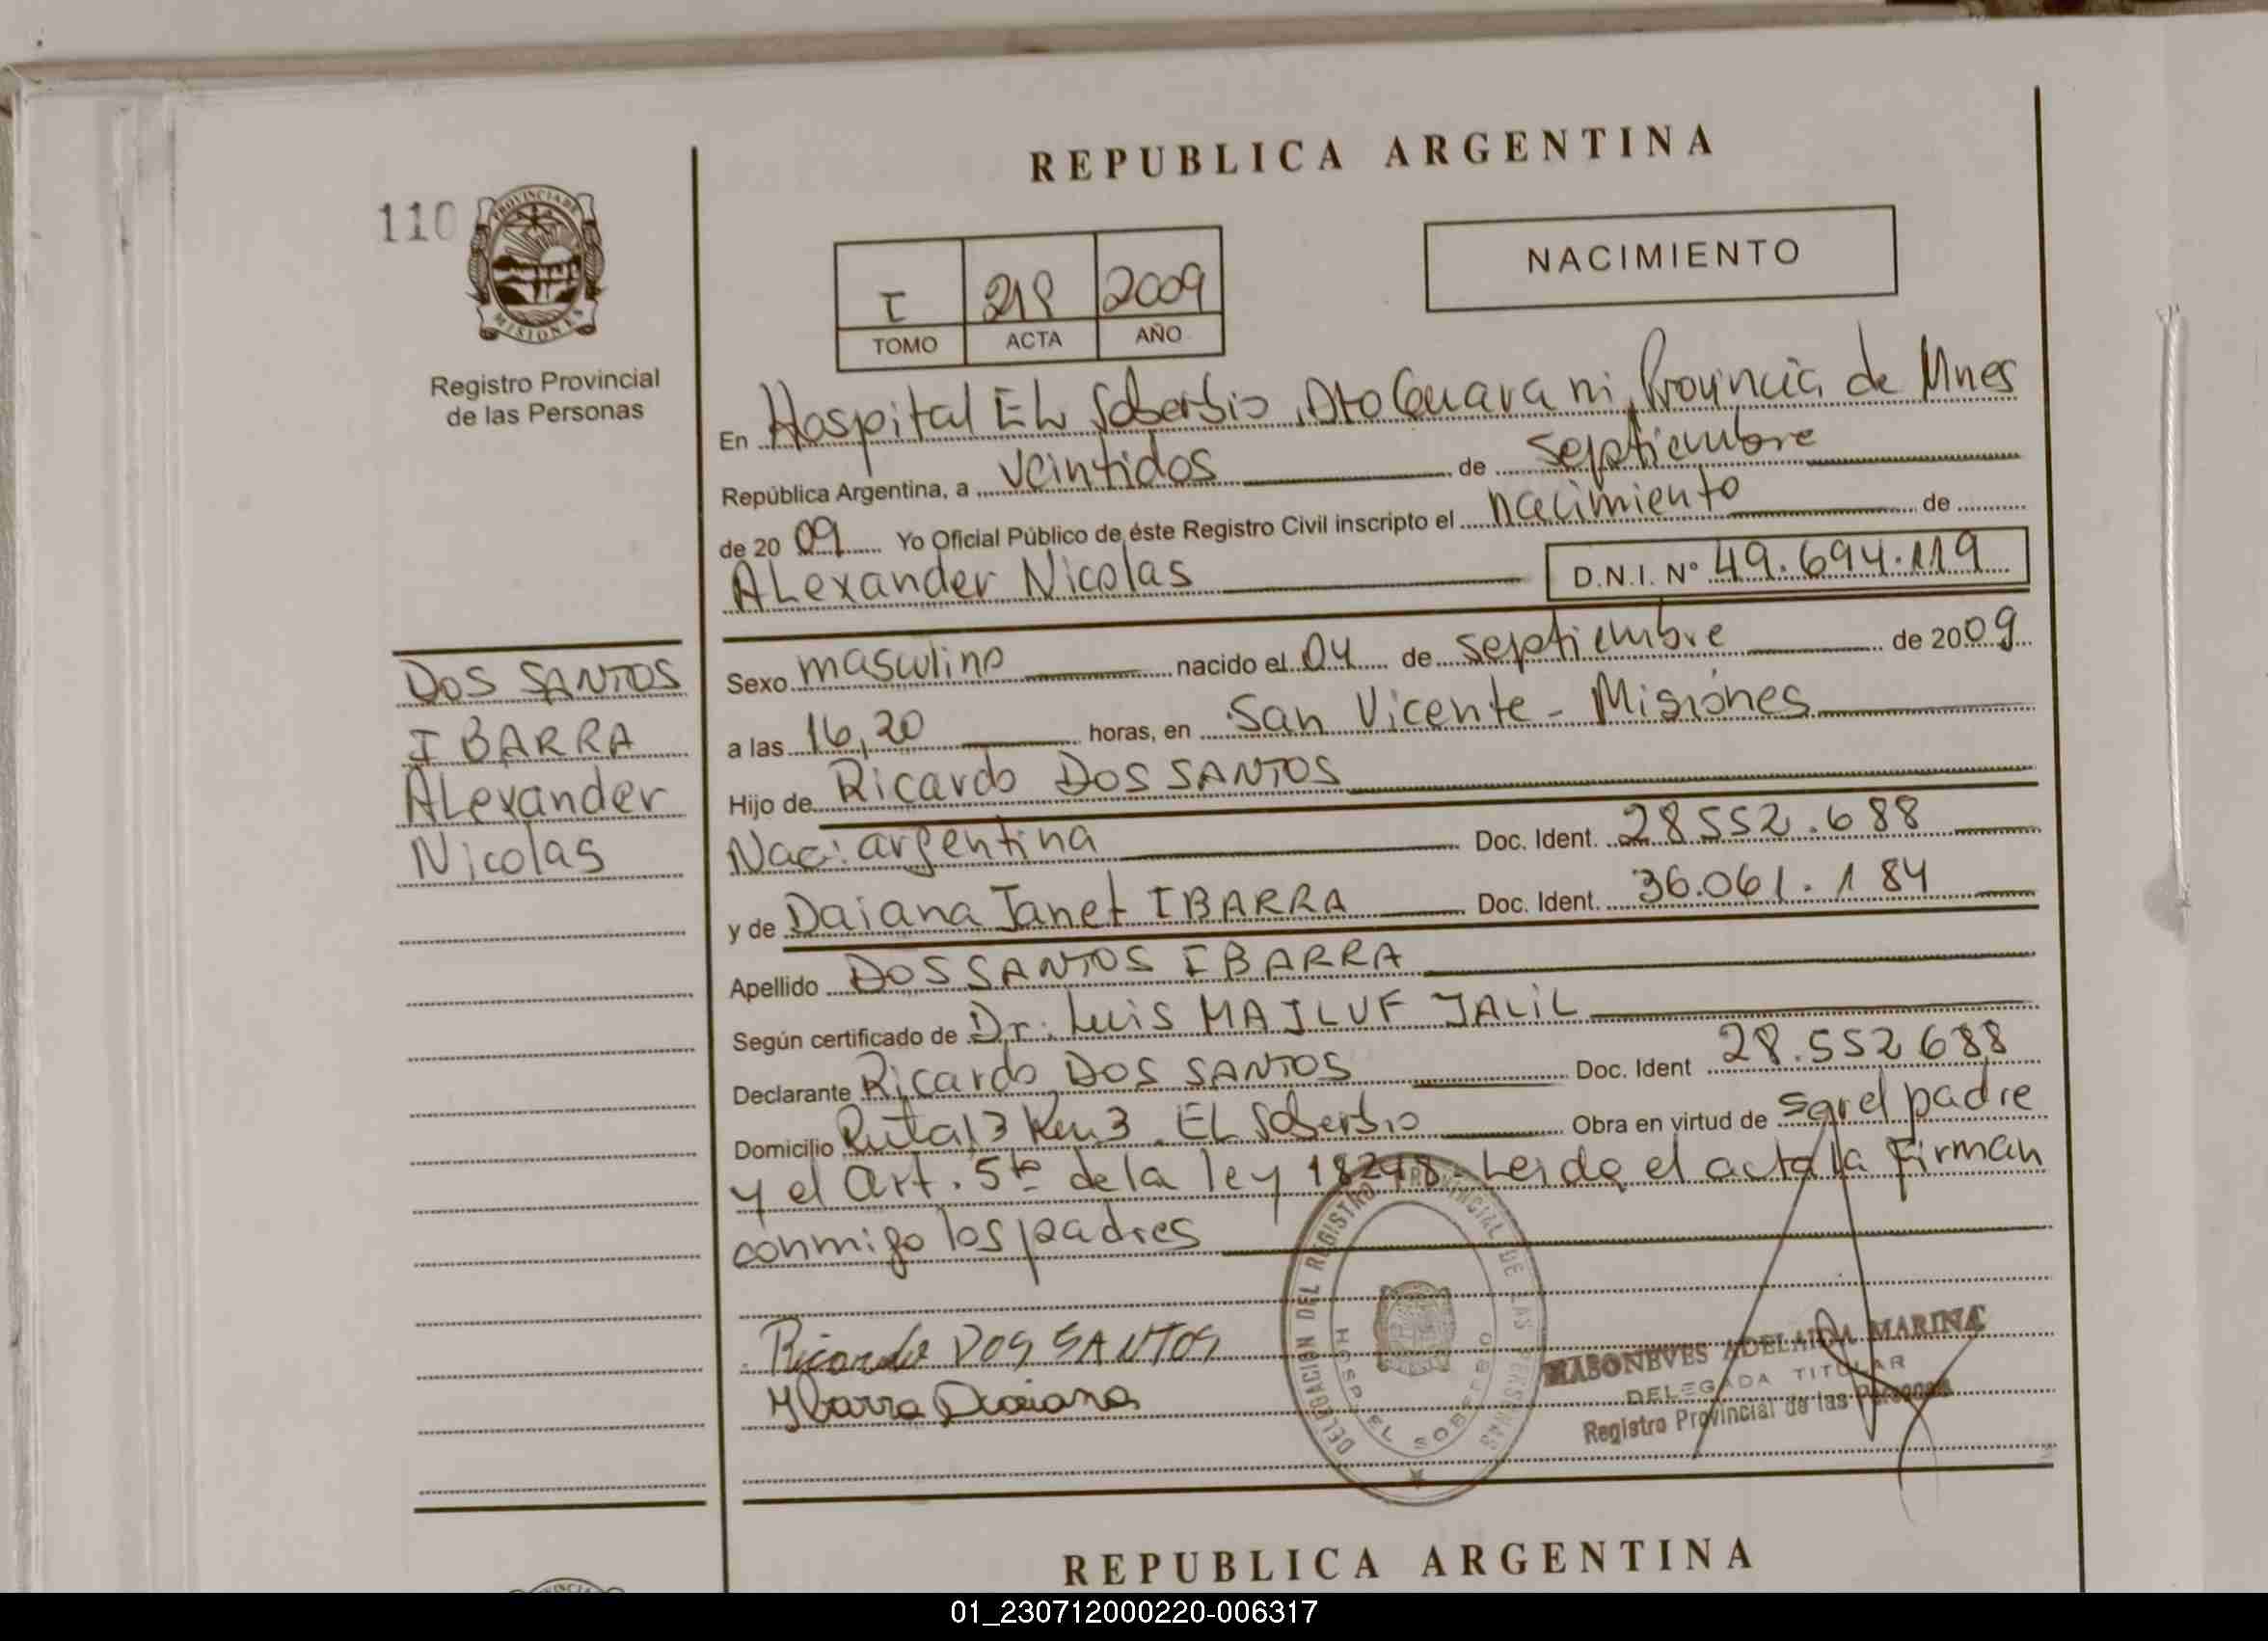 REPUBLICA ARGENTINA
110
PROVINCIA DE
MISIONES
Registro Provincial
de las Personas
NACIMIENTO
I 218 2009
TOMO ACTA AÑO
En Hospital EL Soberbio, Dto Guarani, Provincia de Mnes
República Argentina, a veintidos de septiembre
de 2009 Yo Oficial Público de éste Registro Civil inscripto el nacimiento de
ALexander Nicolas D.N.I. Nº 49.694.119
DOS SANTOS
IBARRA
ALexander
Nicolas
Sexo masculino nacido el 04 de septiembre de 2009
a las 16,20 horas, en San Vicente - Misiones
Hijo de Ricardo DOS SANTOS
Nac: argentina Doc. Ident. 28552.688
y de Daiana Janet IBARRA Doc. Ident. 36.061.184
Apellido DOS SANTOS IBARRA
Según certificado de Dr. Luis MAJLUF JALIL
Declarante Ricardo DOS SANTOS Doc. Ident 28.552688
Domicilio Ruta 13 Km 3 EL Soberbio Obra en virtud de ser el padre
y el art. 5to de la ley 18248 - Leida el acta la Firman
conmigo los padres
Ricardo DOS SANTOS
Ybarra Daiana
DELEGACION DEL REGISTRO PROVINCIAL DE LAS PERSONAS
HOSP. EL SOBERBIO
MASONEVES ADELAIDA MARINA
DELEGADA TITULAR
Registro Provincial de las Personas
REPUBLICA ARGENTINA
01_230712000220-006317